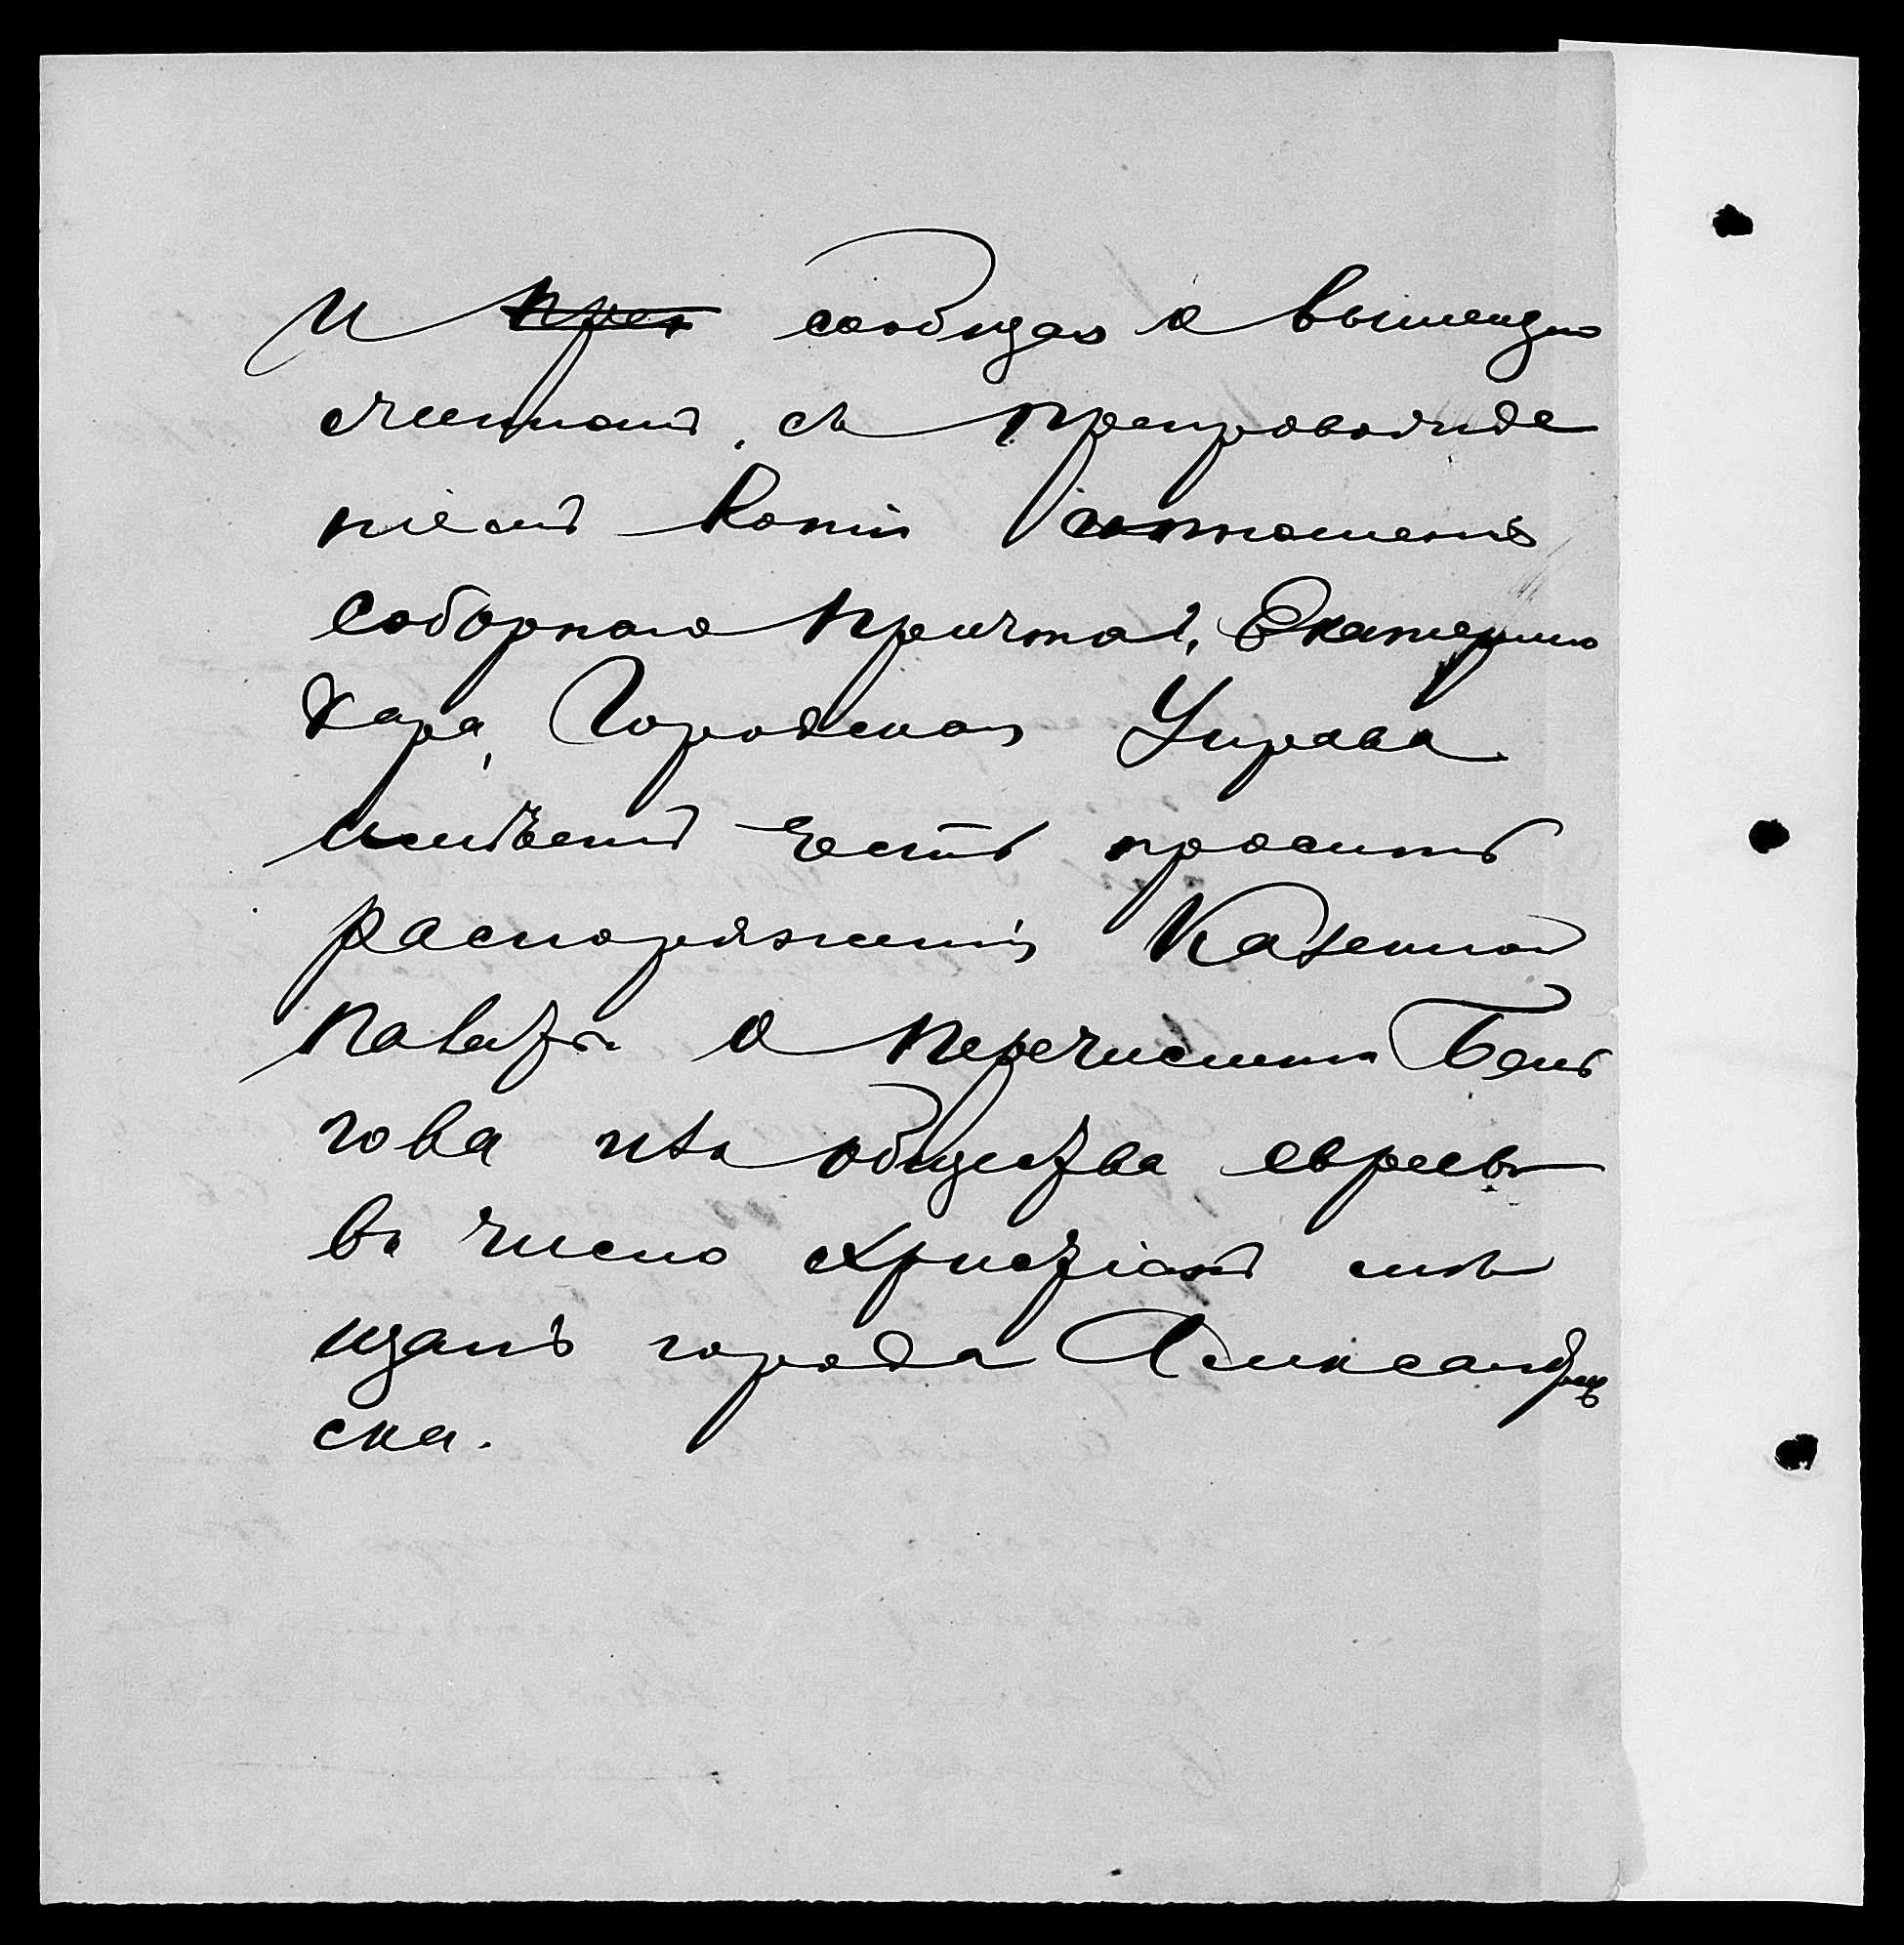 и сообщая о вышеизло
женномъ, съ препровожде
ніемъ копіи отношенія
соборнаго причта, Екатерино
дара, Городская Управа
имѣетъ честь просить
распоряженія Казенной
Палаты о перечисленіи
гова изъ общества евреевъ
въ число христіанъ мѣ
щанъ города Александров
ска.